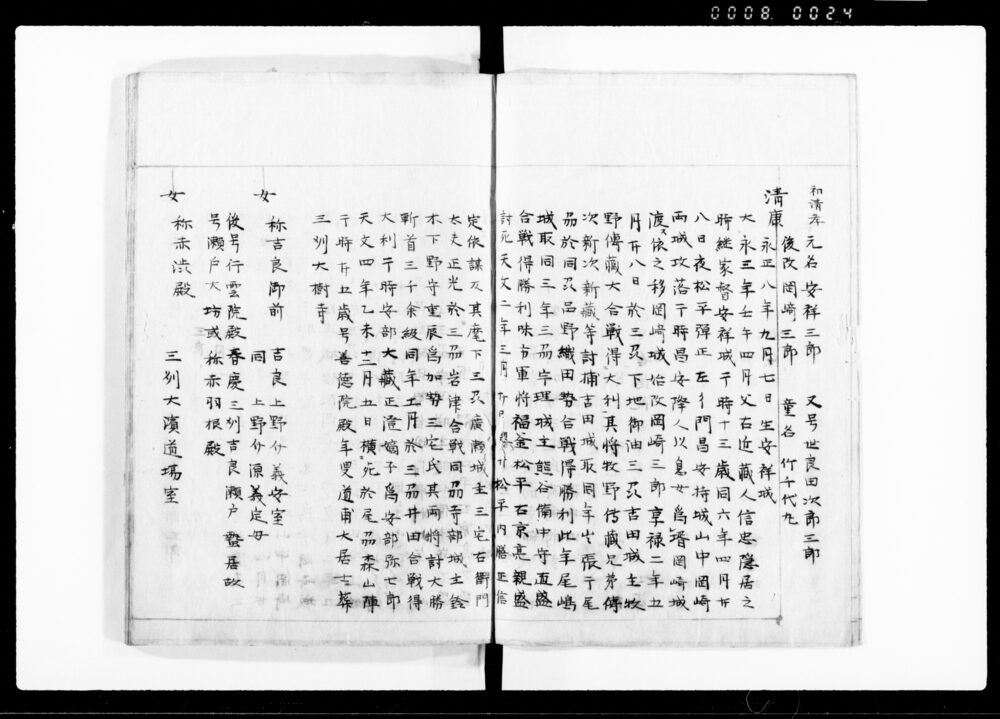 0008.0024
和清孝 元名 安祥三郎 又号世良田次郎三郎
清康 後改岡崎三郎 童名 竹千代丸
永正八年九月七日生安祥城
大永三年壬午四月父右近蔵人信忠隠居之
時継家督安祥城于時十三歳同六年四月廿
八日夜松平弾正左衛門昌安持城山中岡崎
両城攻落于時昌安降人以息女為壻岡崎城
渡依之移岡崎城始改岡崎三郎享禄二年五
月廿八日於三州下地御油三州吉田城主牧
野傳蔵大合戦得大利其将牧野傳蔵兄弟傳
次新次新蔵等討捕吉田城取同年出張于尾
州於同州品野織田勢合戦得勝利此年尾嶋
城取同三年三州宇理城主熊谷備中守直盛
合戦得勝利味方軍将福釜松平右京亮親盛
討死天文二年三月 松平内勝正信
定依謀反其麾下三州廣瀬城主三宅右衛門
太夫正光於三州岩津合戦同州寺部城主鈴
木下野守重辰為加勢三宅氏其両将討大勝
斬首三千余級同年十二月於三州井田合戦得
大利于時安部大蔵正澄嫡子為安部弥七郎
天文四年乙未十二月五日横死於尾州森山陣
于時廿五歳号善徳院殿年叟道甫大居士葬
三州大樹寺
女 称吉良御前 吉良上野介義安室
同 上野介源義定母
後号行雲院殿春慶三州吉良瀬戸蟄居故
号瀬戸大坊或称赤羽根殿
女 称赤渋殿 三州大濱道場室